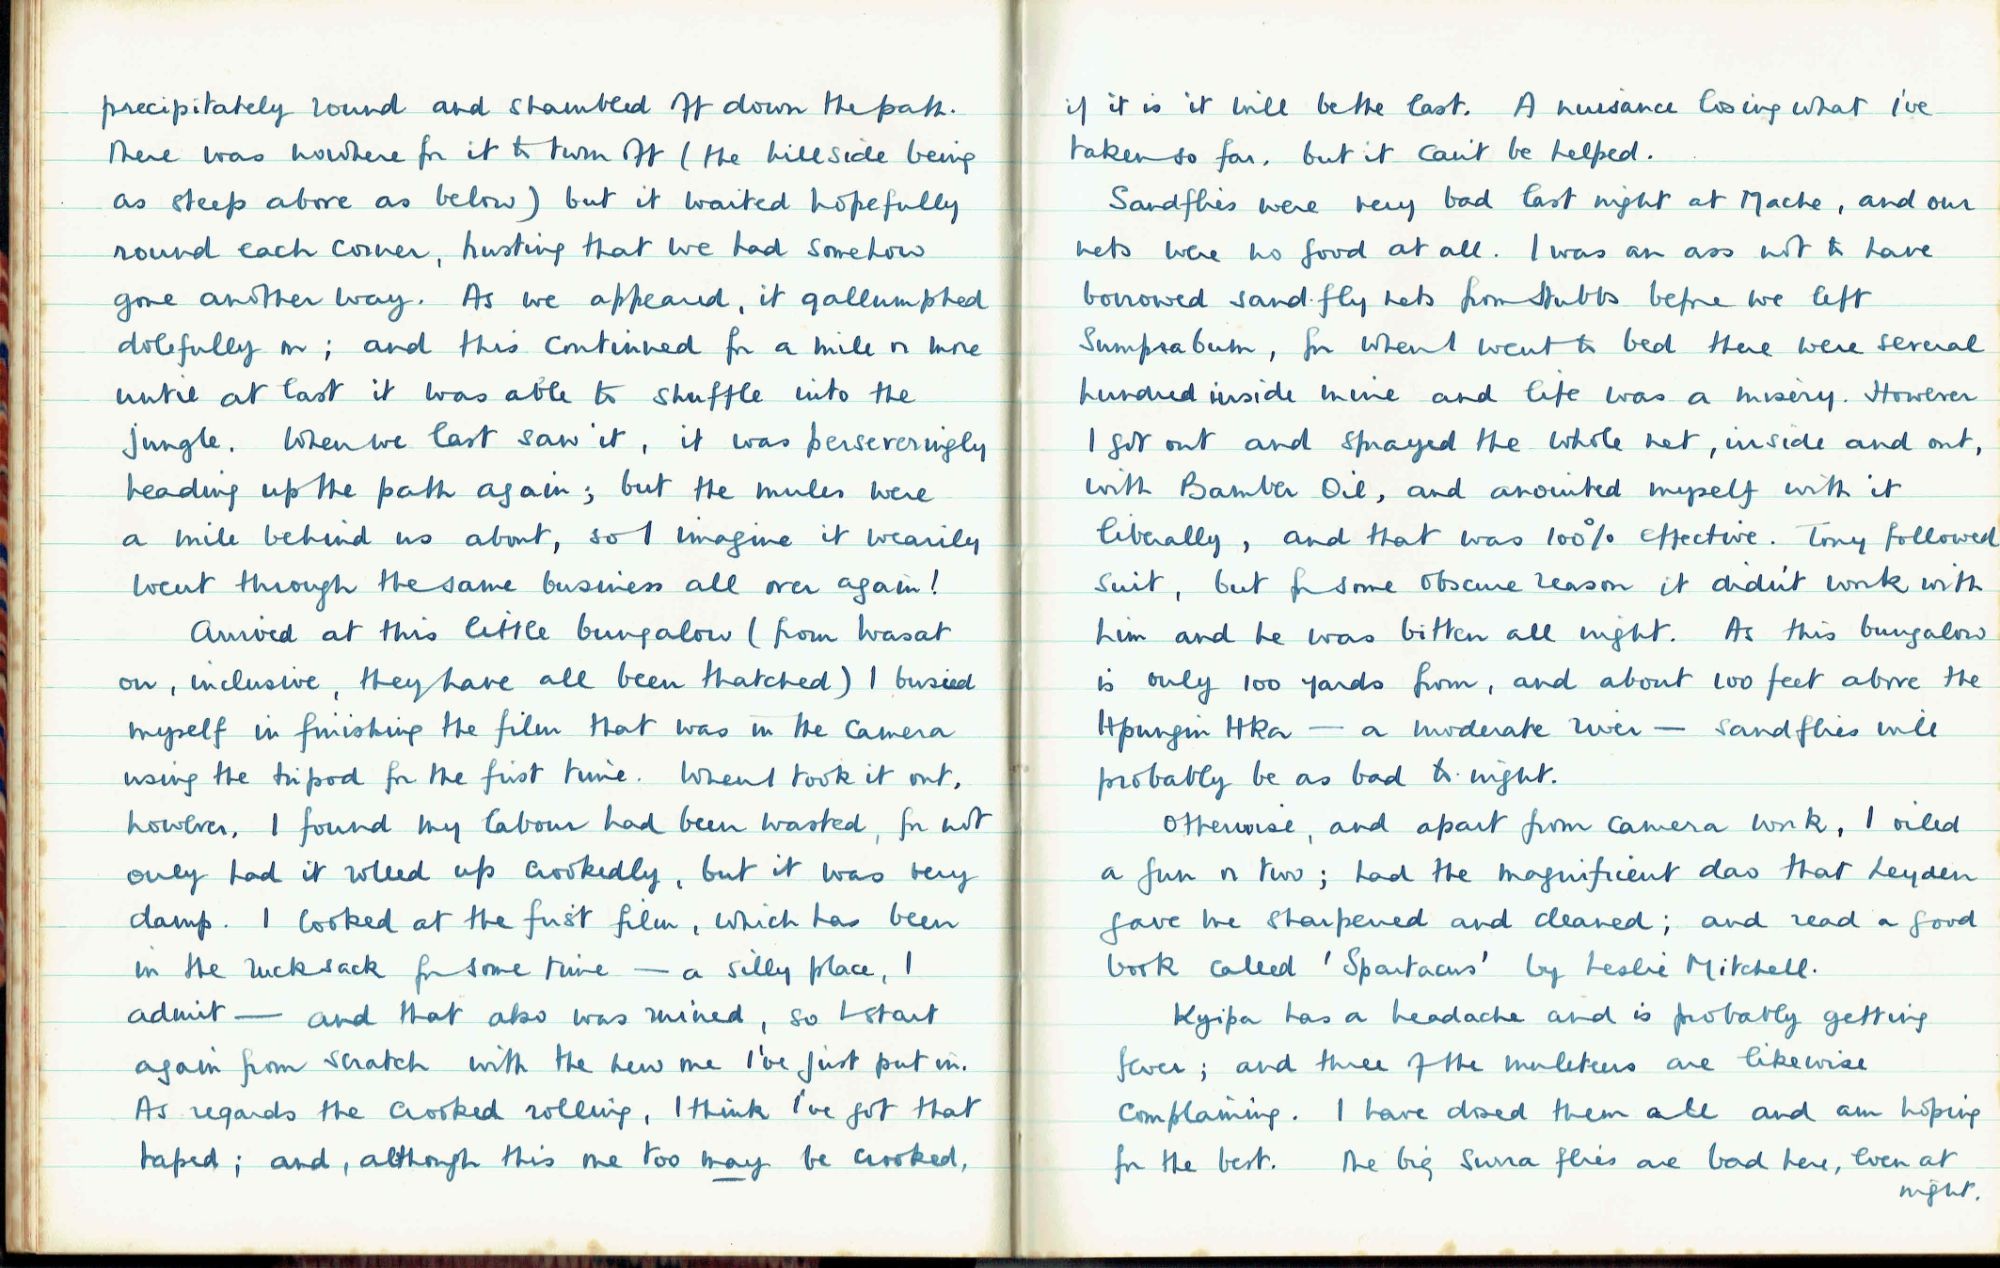 precipitately round and shambled off down the path.
There was nowhere for it to turn off (the hillside being
as steep above as below) but it waited hopefully
round each corner, trusting that we had somehow
gone another way. As we appeared, it gallumphed
dolefully on; and this continued for a mile or more
until at last it was able to shuffle into the
jungle. When we last saw it, it was perseveringly
heading up the path again; but the mules were
a mile behind us about, so I imagine it wearily
went through the same business all over again!
Arrived at this little bungalow (from Wasat
on, inclusive, they have all been thatched) I busied
myself in finishing the film that was in the camera
using the tripod for the first time. When I took it out,
however, I found my labour had been wasted, for not
only had it rolled up crookedly, but it was very
damp. I looked at the first film, which has been
in the rucksack for some time — a silly place, I
admit — and that also was ruined, so I start
again from scratch with the new one I've just put in.
As regards the crooked rolling, I think I've got that
taped; and, although this one too may be crooked,
if it is it will be the last. A nuisance losing what I've
taken so far, but it can't be helped.
Sandflies were very bad last night at Mache, and our
nets were no good at all. I was an ass not to have
borrowed sand-fly nets from Stubbs before we left
Sumprabum, for when I went to bed there were several
hundred inside mine and life was a misery. However
I got out and sprayed the whole net, inside and out,
with Bamber Oil, and anointed myself with it
liberally, and that was 100% effective. Tony followed
suit, but for some obscure reason it didn't work with
him and he was bitten all night. As this bungalow
is only 100 yards from, and about 100 feet above the
Hpungin Hka — a moderate river — sandflies will
probably be as bad to-night.
Otherwise, and apart from camera work, I oiled
a gun or two; had the magnificent dao that Leyden
gave me sharpened and cleaned; and read a good
book called 'Spartacus' by Leslie Mitchell.
Kyipa has a headache and is probably getting
fever; and three of the muleteers are likewise
complaining. I have dosed them all and am hoping
for the best. The big Surra flies are bad here, even at
night.